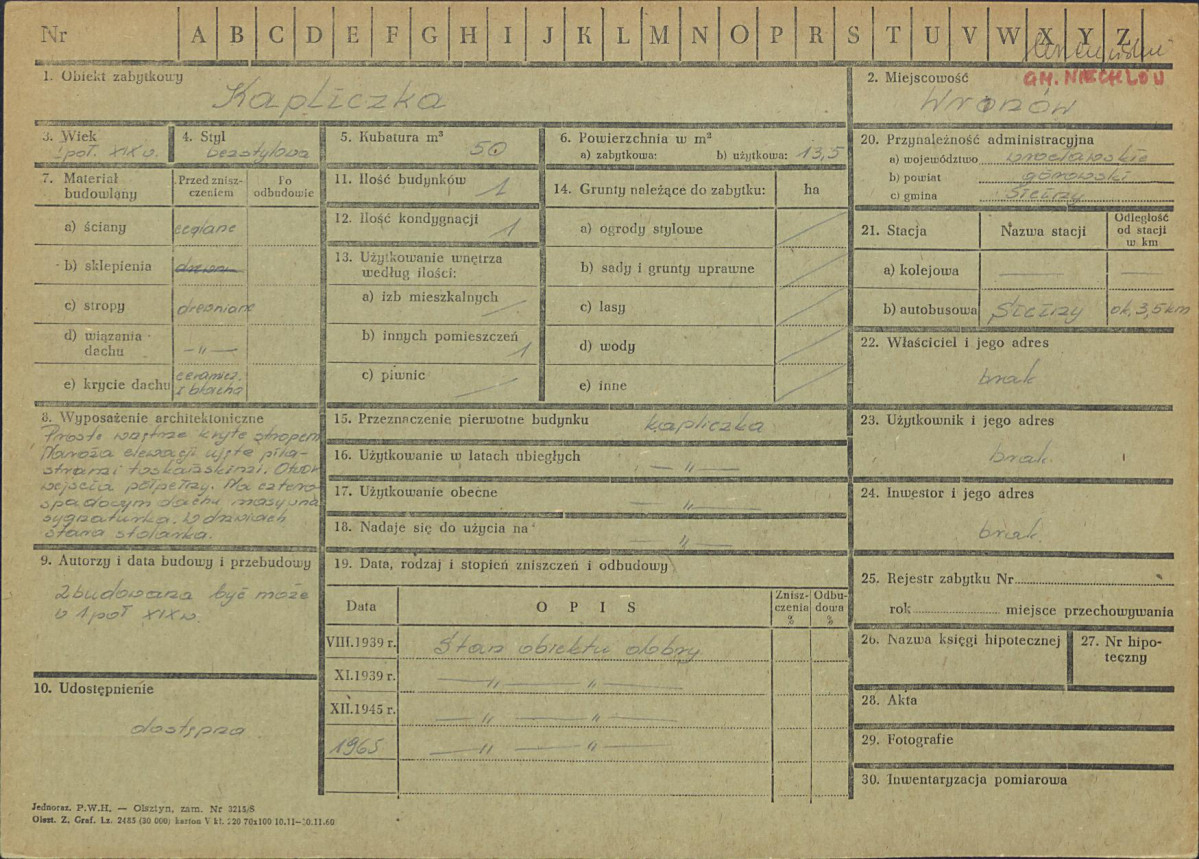 Nr A B C D E F G H I J K L M N O P R S T U V W X Y Z
1. Obiekt zabytkowy
Kapliczka
2. Miejscowość
GM. NIECHLÓW
Wronów
3. Wiek
1 poł. XIX w.
4. Styl
bezstylowa
5. Kubatura m³
50
6. Powierzchnia w m²
a) zabytkowa: b) użytkowa: 13,5
7. Materiał budowlany
Przed zniszczeniem
Po odbudowie
a) ściany ceglane
b) sklepienia
c) stropy drewniane
d) wiązania dachu — „ —
e) krycie dachu ceramicz. i blacha
8. Wyposażenie architektoniczne
Proste wnętrze kryte stropem
Naroża elewacji ujęte pila-
strami toskańskimi. Otwór
wejścia półpełny. Na cztero-
spadowym dachu masywna
sygnaturka. W drzwiach
stara stolarka.
9. Autorzy i data budowy i przebudowy
Zbudowana być może
w 1 poł XIX w.
10. Udostępnienie
dostępna
11. Ilość budynków 1
12. Ilość kondygnacji 1
13. Użytkowanie wnętrza
według ilości:
a) izb mieszkalnych —
b) innych pomieszczeń 1
c) piwnic —
14. Grunty należące do zabytku: ha
a) ogrody stylowe
b) sady i grunty uprawne
c) lasy
d) wody
e) inne
15. Przeznaczenie pierwotne budynku kapliczka
16. Użytkowanie w latach ubiegłych — „ —
17. Użytkowanie obecne — „ —
18. Nadaje się do użycia na — „ —
19. Data, rodzaj i stopień zniszczeń i odbudowy
Data
OPIS
Zniszczenia %
Odbudowa %
VIII.1939 r. Stan obiektu dobry
XI.1939 r. — „ — „ —
XII.1945 r. — „ — „ —
1965 — „ — „ —
20. Przynależność administracyjna
a) województwo wrocławskie
b) powiat górowski
c) gmina Siciny
21. Stacja
Nazwa stacji
Odległość od stacji w km
a) kolejowa — —
b) autobusowa Siciny ok. 3,5 km
22. Właściciel i jego adres
brak
23. Użytkownik i jego adres
brak.
24. Inwestor i jego adres
brak.
25. Rejestr zabytku Nr
rok miejsce przechowywania
26. Nazwa księgi hipotecznej
27. Nr hipoteczny
28. Akta
29. Fotografie
30. Inwentaryzacja pomiarowa
Jednoraz. P.W.H. — Olsztyn, zam. Nr 3215/S
Olszt. Z. Graf. Lz. 2485 (30 000) karton V kl. 220 70x100 10.11—30.11.60